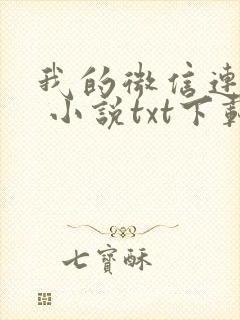 我的微信连
小说txt下载
七寶酥